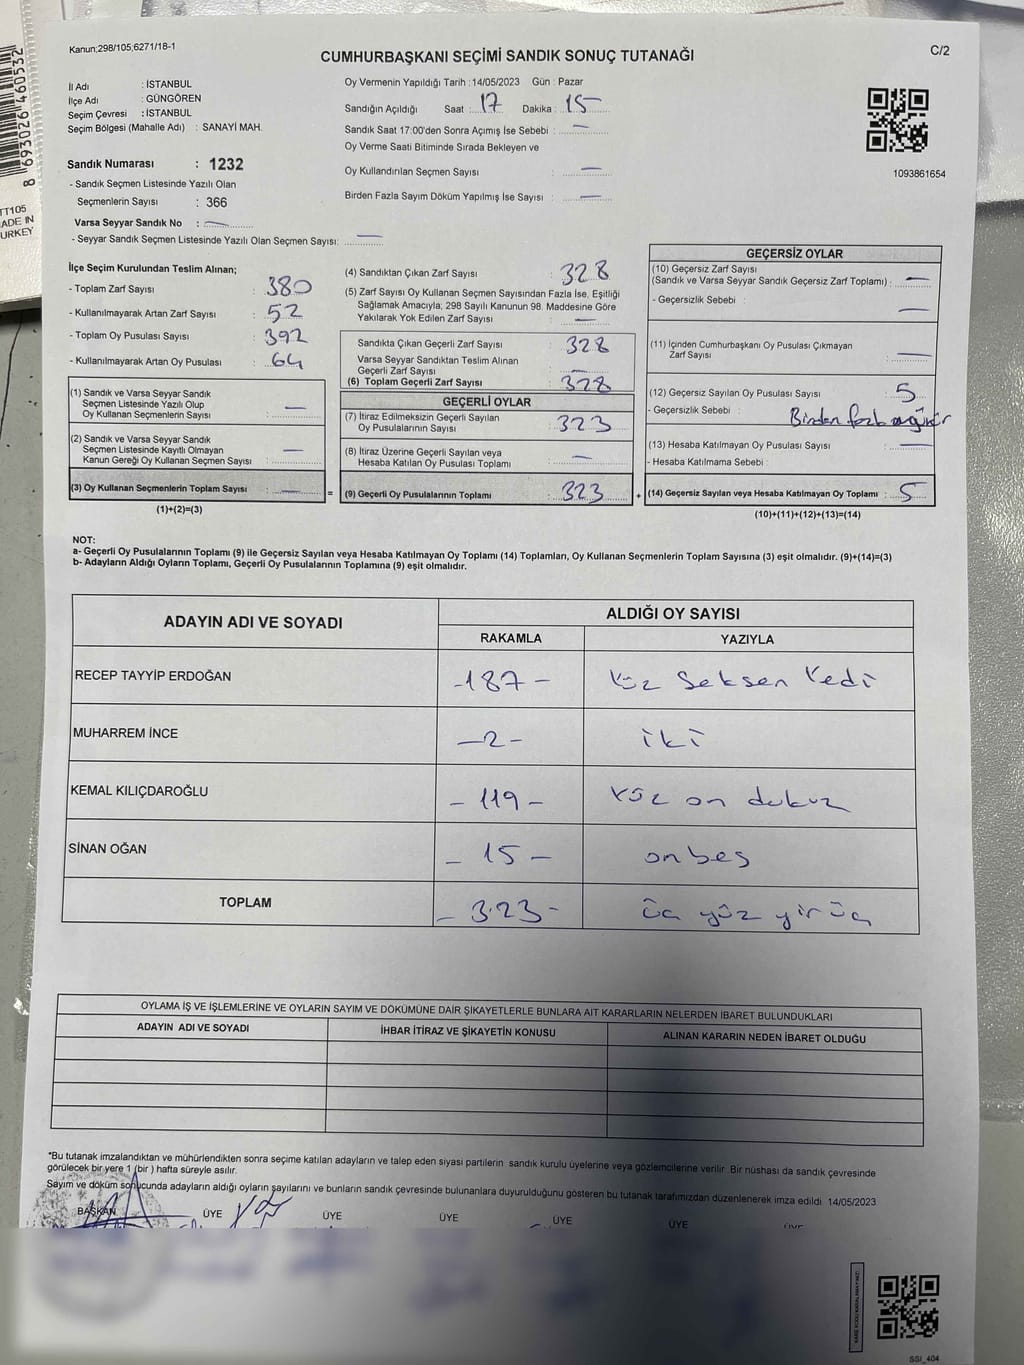 Kanun;298/105;6271/18-1
CUMHURBAŞKANI SEÇİMİ SANDIK SONUÇ TUTANAĞI
C/2
İl Adı : İSTANBUL
İlçe Adı : GÜNGÖREN
Seçim Çevresi : İSTANBUL
Seçim Bölgesi (Mahalle Adı) : SANAYİ MAH.
Sandık Numarası : 1232
- Sandık Seçmen Listesinde Yazılı Olan
Seçmenlerin Sayısı : 366
Varsa Seyyar Sandık No :
- Seyyar Sandık Seçmen Listesinde Yazılı Olan Seçmen Sayısı:
Oy Vermenin Yapıldığı Tarih : 14/05/2023 Gün : Pazar
Sandığın Açıldığı Saat : 17 Dakika : 15
Sandık Saat 17:00'den Sonra Açımış İse Sebebi : —
Oy Verme Saati Bitiminde Sırada Bekleyen ve
Oy Kullandırılan Seçmen Sayısı : —
Birden Fazla Sayım Döküm Yapılmış İse Sayısı : —
1093861654
8 693026 460532
TT105
ADE IN
URKEY
İlçe Seçim Kurulundan Teslim Alınan;
- Toplam Zarf Sayısı : 380
- Kullanılmayarak Artan Zarf Sayısı : 52
- Toplam Oy Pusulası Sayısı : 392
- Kullanılmayarak Artan Oy Pusulası : 64
(1) Sandık ve Varsa Seyyar Sandık
Seçmen Listesinde Yazılı Olup
Oy Kullanan Seçmenlerin Sayısı : —
(2) Sandık ve Varsa Seyyar Sandık
Seçmen Listesinde Kayıtlı Olmayan
Kanun Gereği Oy Kullanan Seçmen Sayısı : —
(3) Oy Kullanan Seçmenlerin Toplam Sayısı : — =
(1)+(2)=(3)
(4) Sandıktan Çıkan Zarf Sayısı : 328
(5) Zarf Sayısı Oy Kullanan Seçmen Sayısından Fazla İse, Eşitliği
Sağlamak Amacıyla; 298 Sayılı Kanunun 98. Maddesine Göre
Yakılarak Yok Edilen Zarf Sayısı : —
Sandıkta Çıkan Geçerli Zarf Sayısı : 328
Varsa Seyyar Sandıktan Teslim Alınan
Geçerli Zarf Sayısı :
(6) Toplam Geçerli Zarf Sayısı : 328
GEÇERLİ OYLAR
(7) İtiraz Edilmeksizin Geçerli Sayılan
Oy Pusulalarının Sayısı : 323
(8) İtiraz Üzerine Geçerli Sayılan veya
Hesaba Katılan Oy Pusulası Toplamı : —
(9) Geçerli Oy Pusulalarının Toplamı : 323 +
GEÇERSİZ OYLAR
(10) Geçersiz Zarf Sayısı
(Sandık ve Varsa Seyyar Sandık Geçersiz Zarf Toplamı) : —
- Geçersizlik Sebebi : —
(11) İçinden Cumhurbaşkanı Oy Pusulası Çıkmayan
Zarf Sayısı : —
(12) Geçersiz Sayılan Oy Pusulası Sayısı : 5
- Geçersizlik Sebebi : Birden fazla
(13) Hesaba Katılmayan Oy Pusulası Sayısı : —
- Hesaba Katılmama Sebebi :
(14) Geçersiz Sayılan veya Hesaba Katılmayan Oy Toplamı : 5
(10)+(11)+(12)+(13)=(14)
NOT:
a- Geçerli Oy Pusulalarının Toplamı (9) ile Geçersiz Sayılan veya Hesaba Katılmayan Oy Toplamı (14) Toplamları, Oy Kullanan Seçmenlerin Toplam Sayısına (3) eşit olmalıdır. (9)+(14)=(3)
b- Adayların Aldığı Oyların Toplamı, Geçerli Oy Pusulalarının Toplamına (9) eşit olmalıdır.
ADAYIN ADI VE SOYADI
ALDIĞI OY SAYISI
RAKAMLA YAZIYLA
RECEP TAYYİP ERDOĞAN -187- Yüz Seksen Yedi
MUHARREM İNCE -2- iki
KEMAL KILIÇDAROĞLU -119- Yüz on dokuz
SİNAN OĞAN -15- onbeş
TOPLAM -323- üç yüz yir üç
OYLAMA İŞ VE İŞLEMLERİNE VE OYLARIN SAYIM VE DÖKÜMÜNE DAİR ŞİKAYETLERLE BUNLARA AİT KARARLARIN NELERDEN İBARET BULUNDUKLARI
ADAYIN ADI VE SOYADI İHBAR İTİRAZ VE ŞİKAYETİN KONUSU ALINAN KARARIN NEDEN İBARET OLDUĞU
*Bu tutanak imzalandıktan ve mühürlendikten sonra seçime katılan adayların ve talep eden siyasi partilerin sandık kurulu üyelerine veya gözlemcilerine verilir. Bir nüshası da sandık çevresinde
görülecek bir yere 1 (bir) hafta süreyle asılır.
Sayım ve döküm sonucunda adayların aldığı oyların sayılarını ve bunların sandık çevresinde bulunanlara duyurulduğunu gösteren bu tutanak tarafımızdan düzenlenerek imza edildi. 14/05/2023
BAŞKAN ÜYE ÜYE ÜYE ÜYE ÜYE ÜYE
SSİ_404